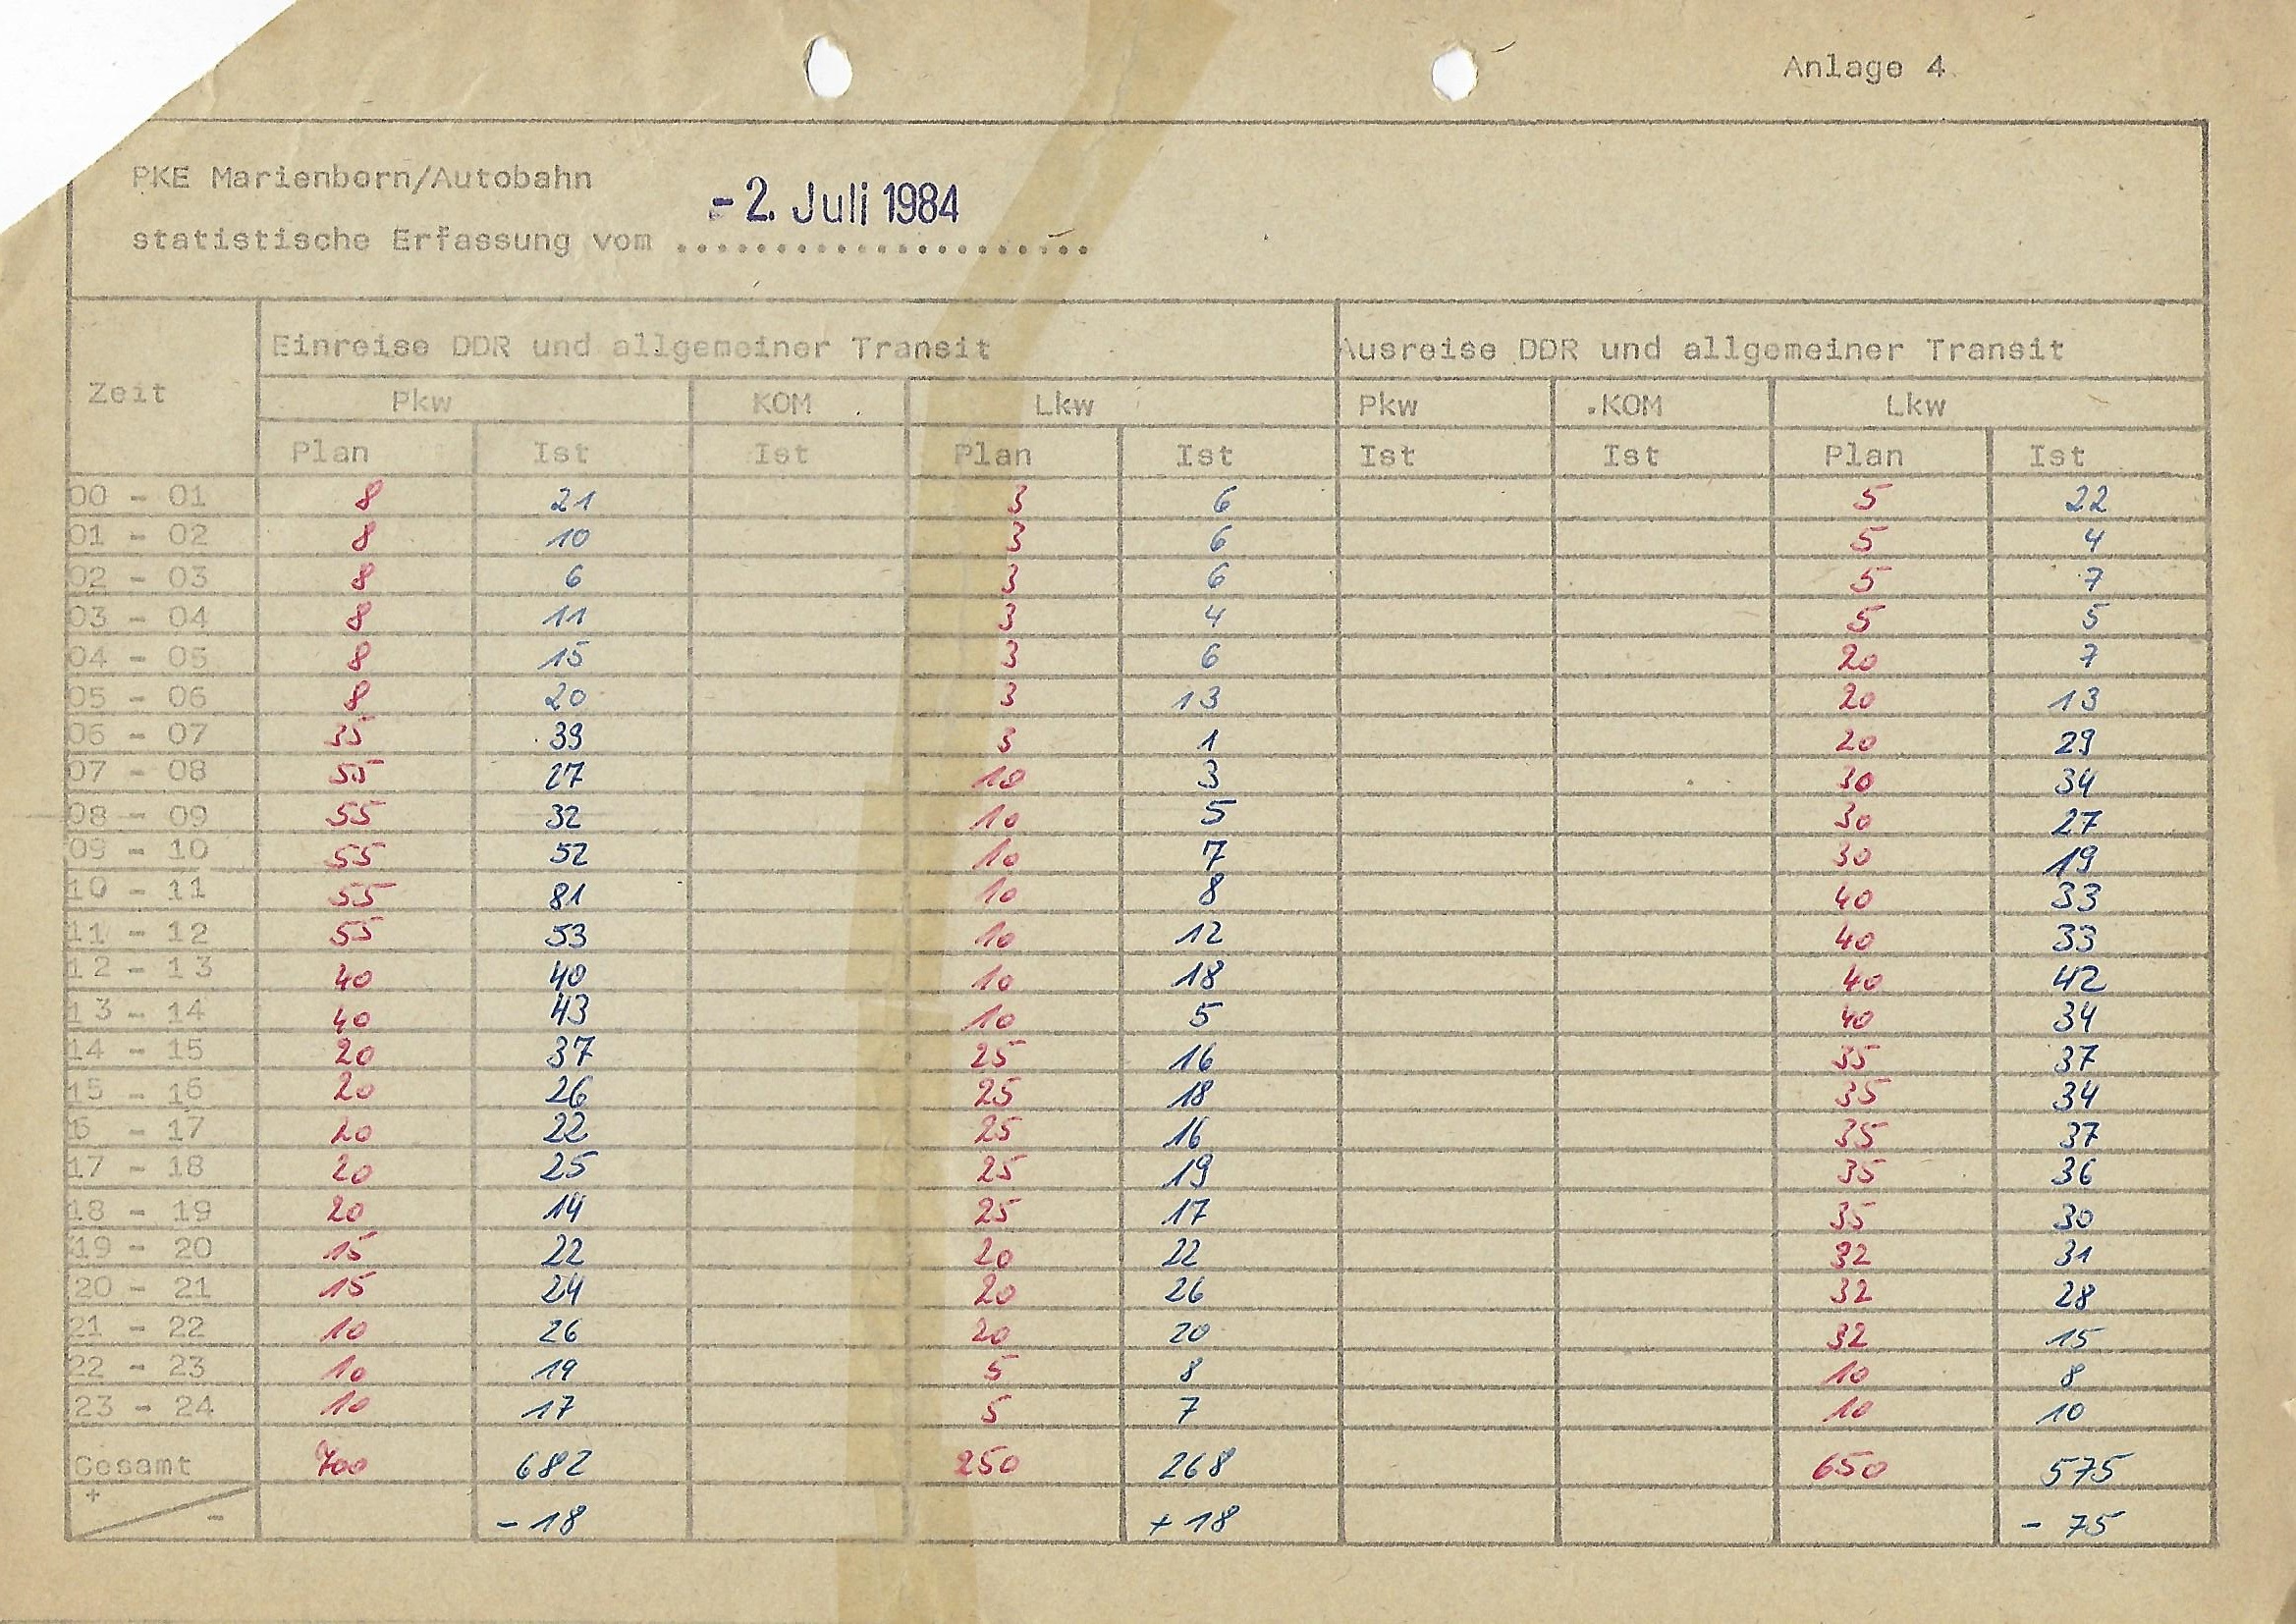 Anlage 4
PKE Marienborn/Autobahn
- 2. Juli 1984
statistische Erfassung vom .....................
Zeit Einreise DDR und allgemeiner Transit Ausreise DDR und allgemeiner Transit
Pkw KOM Lkw Pkw KOM Lkw
Plan Ist Ist Plan Ist Ist Ist Plan Ist
00 - 01 8 21 3 6 5 22
01 - 02 8 10 3 6 5 4
02 - 03 8 6 3 6 5 7
03 - 04 8 11 3 4 5 5
04 - 05 8 15 3 6 20 7
05 - 06 8 20 3 13 20 13
06 - 07 35 39 3 1 20 29
07 - 08 55 27 10 3 30 34
08 - 09 55 32 10 5 30 27
09 - 10 55 52 10 7 30 19
10 - 11 55 81 10 8 40 33
11 - 12 55 53 10 12 40 33
12 - 13 40 40 10 18 40 42
13 - 14 40 43 10 5 40 34
14 - 15 20 37 25 16 35 37
15 - 16 20 26 25 18 35 34
6 - 17 20 22 25 16 35 37
17 - 18 20 25 25 19 35 36
18 - 19 20 14 25 17 35 30
19 - 20 15 22 20 22 32 31
20 - 21 15 24 20 26 32 28
21 - 22 10 26 20 20 32 15
22 - 23 10 19 5 8 10 8
23 - 24 10 17 5 7 10 10
Gesamt 700 682 250 268 650 575
+ - - 18 + 18 - 75